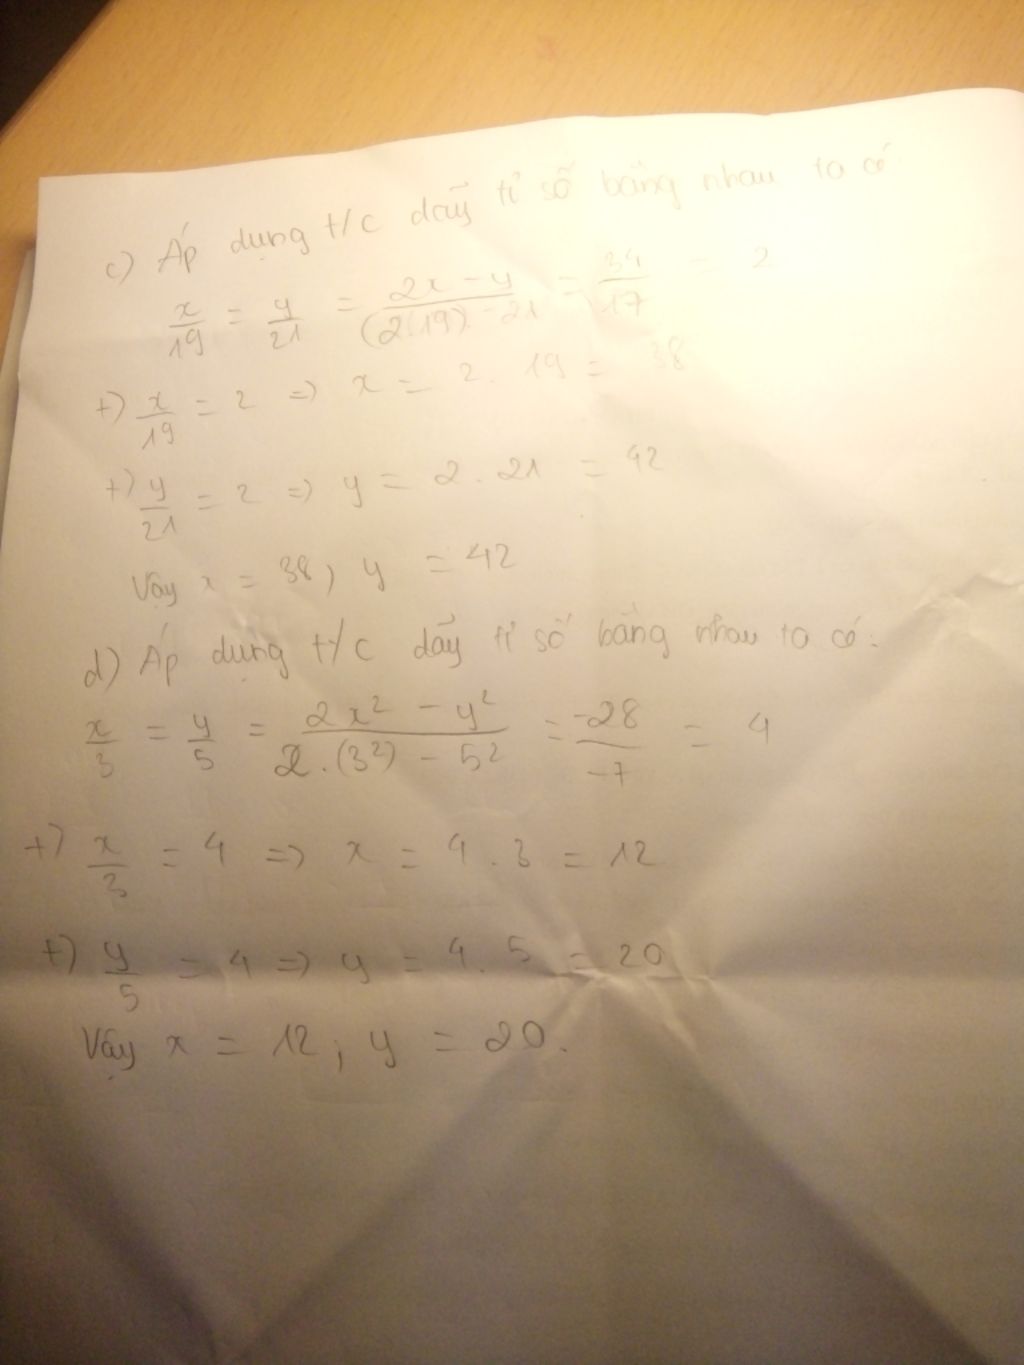 c) Áp dụng t/c dãy tỉ số bằng nhau ta có
x/19 = y/21 = (2x - y)/((2.19) - 21) = 34/17 = 2
+) x/19 = 2 => x = 2 . 19 = 38
+) y/21 = 2 => y = 2 . 21 = 42
Vậy x = 38, y = 42
d) Áp dụng t/c dãy tỉ số bằng nhau ta có:
x/3 = y/5 = (2x² - y²)/(2.(3²) - 5²) = -28/-7 = 4
+) x/3 = 4 => x = 4 . 3 = 12
+) y/5 = 4 => y = 4 . 5 = 20
Vậy x = 12 ; y = 20.